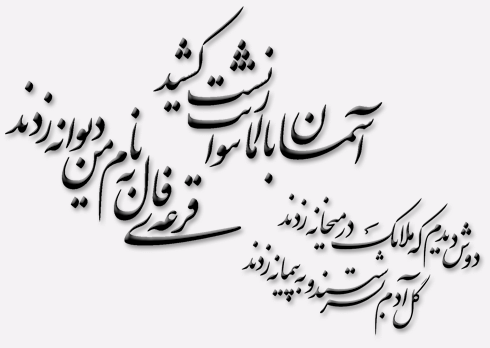 آسمان بار امانت نتوانست کشید
قرعه‌ی فال به نام من دیوانه زدند
دوش دیدم که ملائک در میخانه زدند
گل آدم بسرشتند و به پیمانه زدند